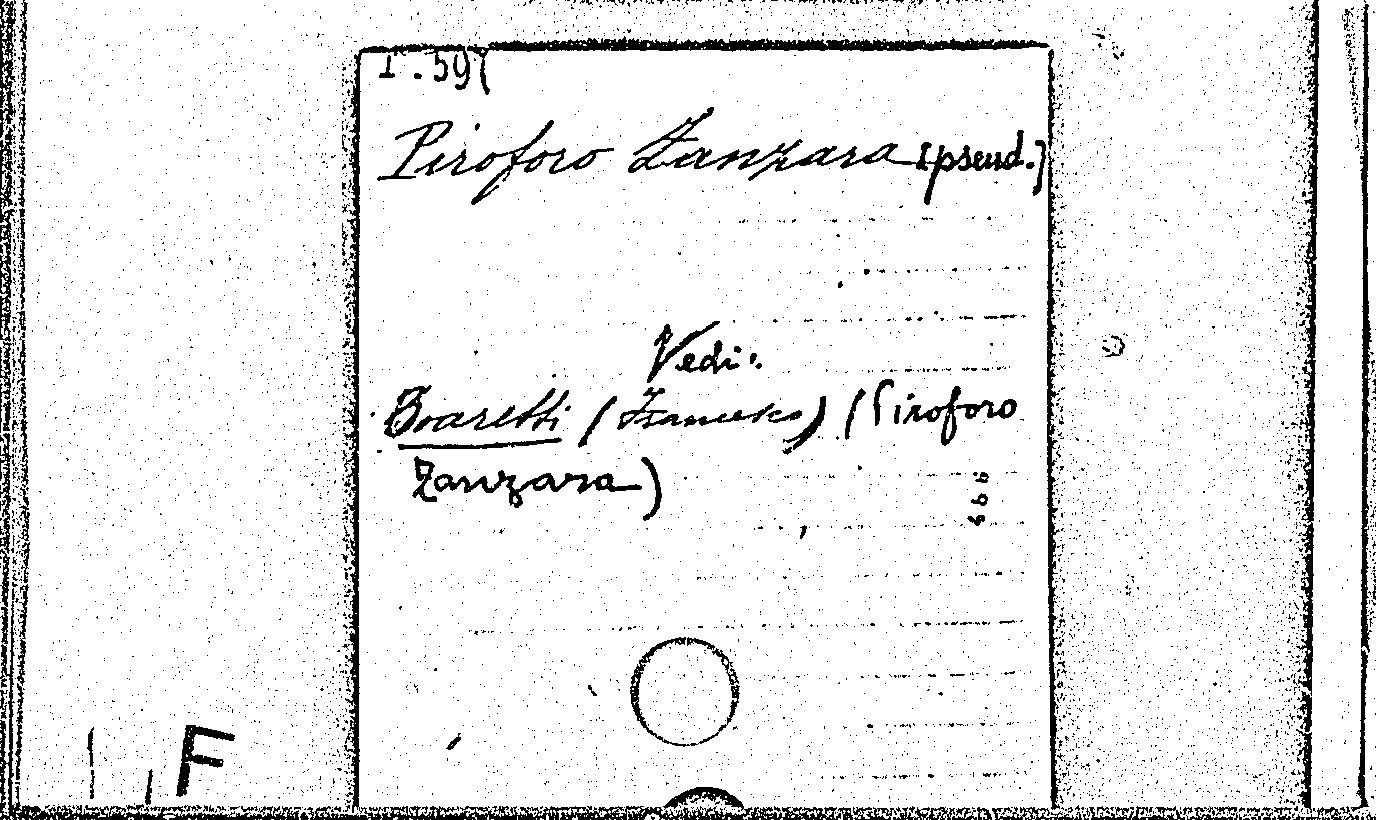 Piroforo Zanzara [pseud.]
Vedi:
Boaretti (Francesco) (Piroforo
Zanzara)
F